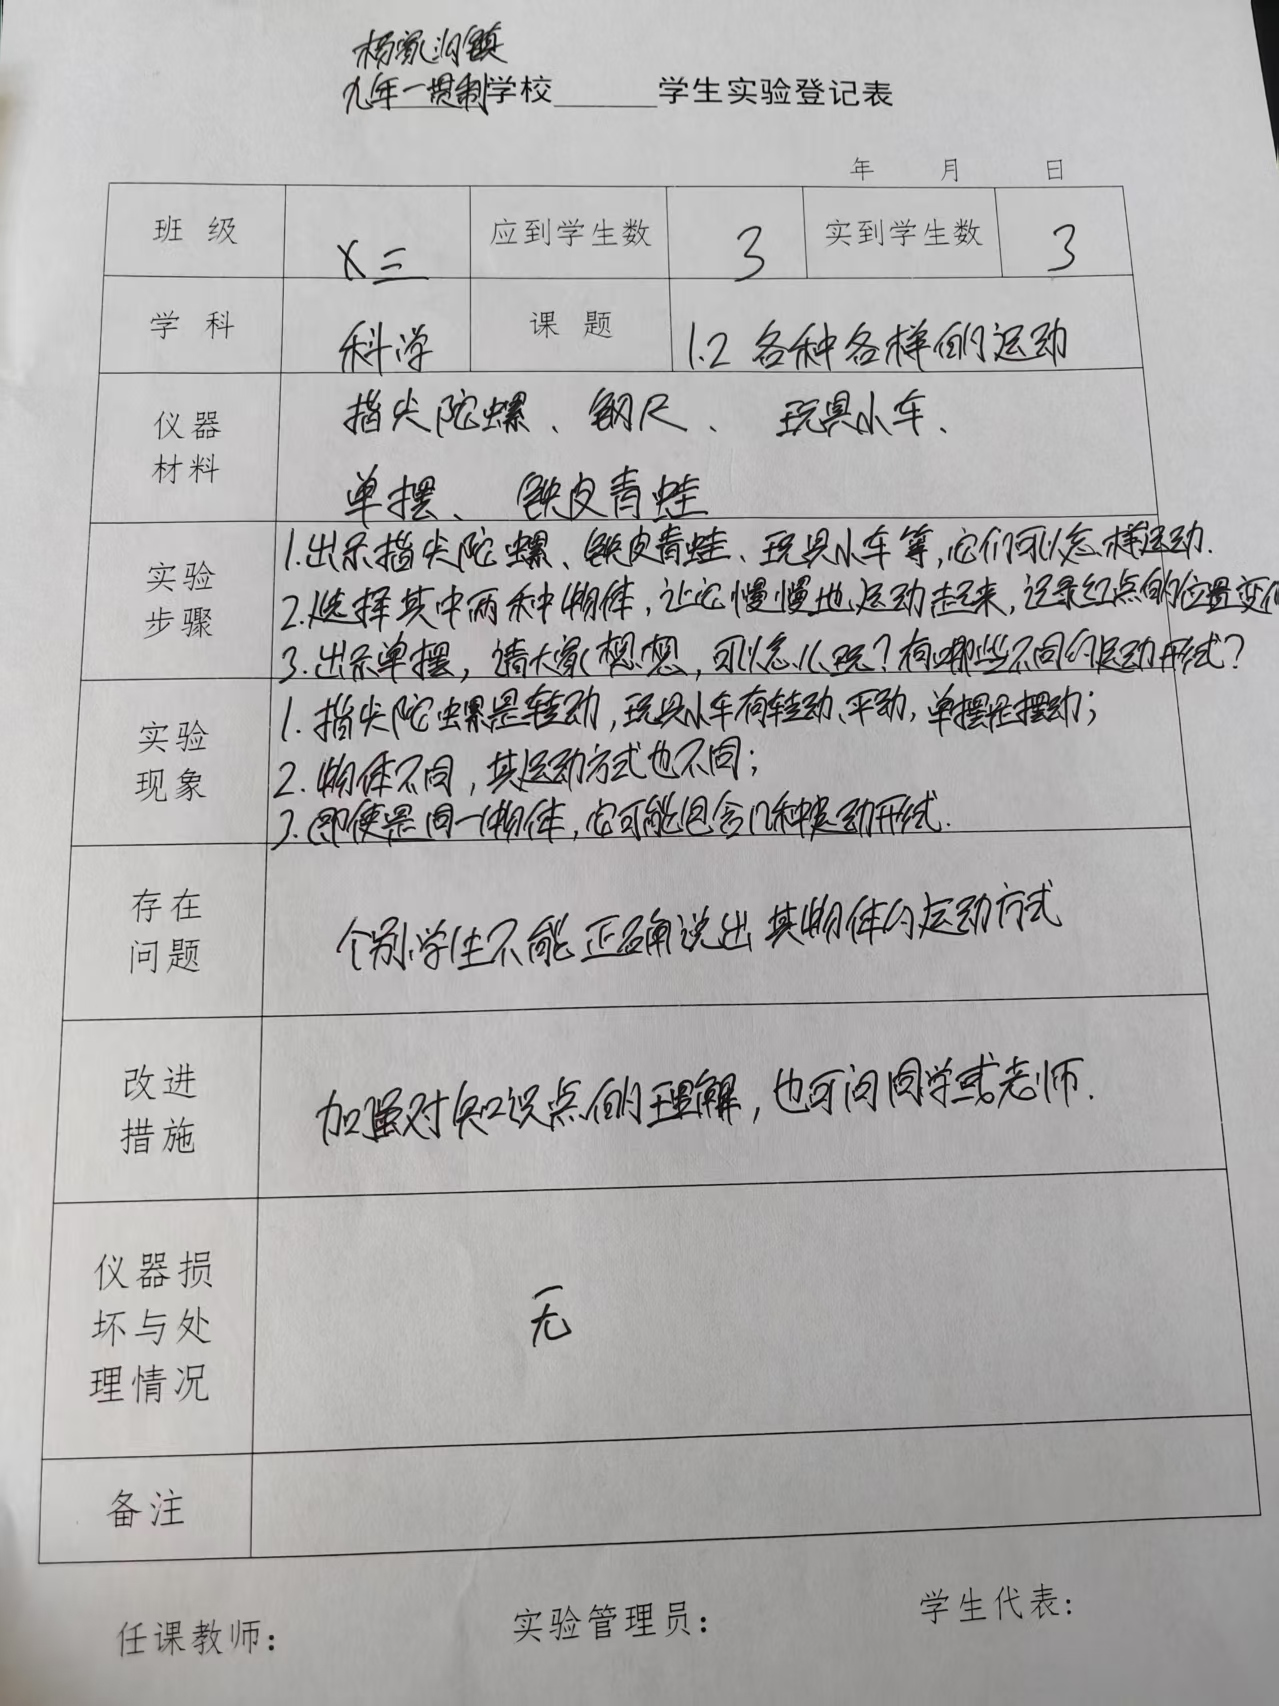 杨家沟镇
九年一贯制学校______学生实验登记表
年 月 日
班 级 X三 应到学生数 3 实到学生数 3
学 科 科学 课 题 1.2 各种各样的运动
仪器材料
指尖陀螺、钢尺、玩具小车、
单摆、铁皮青蛙
实验步骤
1.出示指尖陀螺、铁皮青蛙、玩具小车等,它们可以怎样运动.
2.选择其中两种物体,让它慢慢地运动起来,记录红点的位置变化
3.出示单摆,请大家想想,可以怎么玩?有哪些不同的运动形式?
实验现象
1.指尖陀螺是转动,玩具小车有转动、平动,单摆是摆动;
2.物体不同,其运动方式也不同;
3.即使是同一物体,它可能包含几种运动形式.
存在问题
个别学生不能正确说出其物体的运动方式
改进措施
加强对知识点的理解,也可问同学或老师.
仪器损坏与处理情况
无
备注
任课教师: 实验管理员: 学生代表: